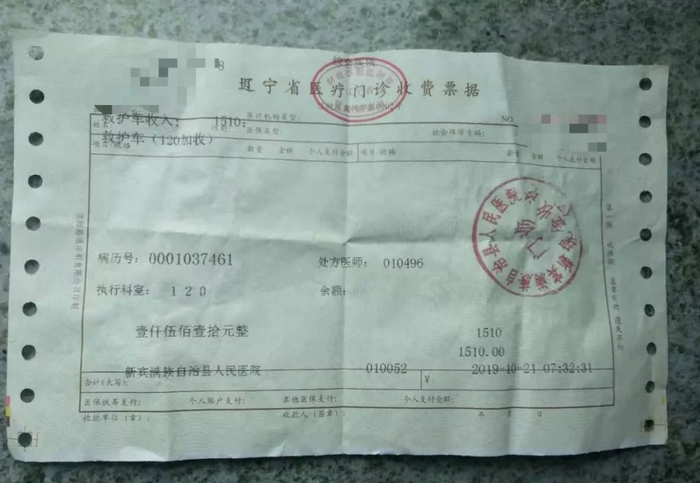 综合医院
辽宁省医疗门诊收费票据
NO
救护车收入: 1510: 医疗机构类型:
救护车(120加收) 医保类型: 社会保障号码:
项目/规格 数量 金额 个人支付金额 项目/规格 数量 金额 个人支付金额
新宾满族自治县人民医院
病历号: 0001037461 处方医师: 010496
执行科室: 120 余额:
壹仟伍佰壹拾元整 1510
1510.00
新宾满族自治县人民医院 010052 2019-10-21 07:32:31
合计(大写): ¥:
医保统筹支付: 个人账户支付: 其他医保支付: 个人支付金额:
收款单位(章): 收款人(签章): 年 月 日